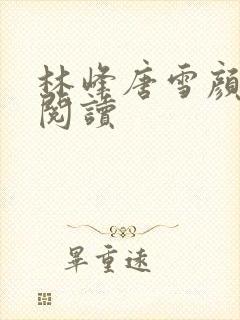 林峰唐雪顏
閱讀
畢重遠